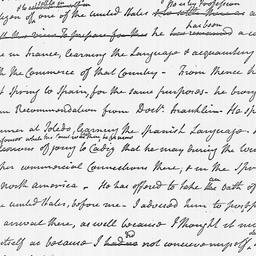 to establish in
Prior by Profession
izen of one of the united States
has been
he a co
in france, learning the Language & acquainting
th the Commerce of that Country - From thence he
t Spring to Spain, for the same purposes. he brought
Recommendation from Doctr. franklin. He sp
at Toledo, learning the Spanish Language.
of going to Cadiz that he may during the
commercial Connections there, & in the Spri
north america. He has offered to take the oath of
the united States, before me - I advised him to postp
arrival there, as well because I thought it m
itself as because I did not conceive myself